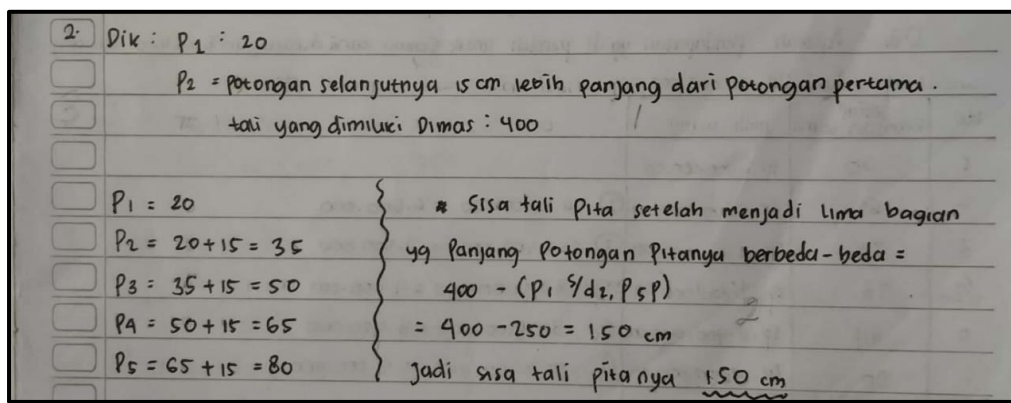 2. Dik : P1 : 20
P2 = Potongan selanjutnya 15 cm lebih panjang dari potongan pertama.
tali yang dimiliki Dimas : 400
1
P1 = 20
P2 = 20+15 = 35
P3 = 35+15 = 50
P4 = 50+15 = 65
P5 = 65+15 = 80
* Sisa tali Pita setelah menjadi lima bagian
yg Panjang Potongan Pitanya berbeda-beda =
400 - (P1 s/d
= 400 - 250 = 150 cm
2
Jadi sisa tali pitanya 150 cm